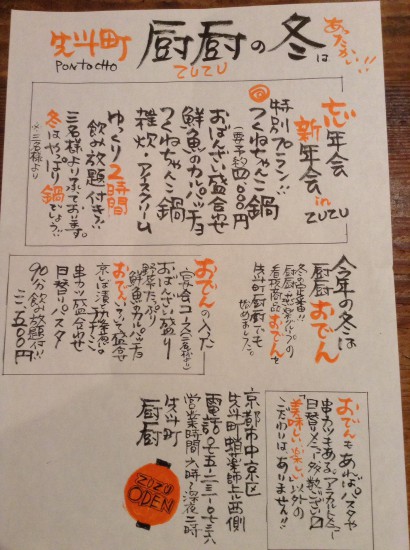 先斗町
PONTOCHO
厨厨の冬は
ZUZU
あたたかい!!
忘年会
新年会 in ZUZU
特別プラン!!
つくねちゃんこ鍋
(要予約) 四,〇〇〇円
おばんざい盛合せ
鮮魚のカルパッチョ
つくねちゃんこ鍋
雑炊・アイスクリーム
ゆっくり2時間
飲み放題付き!!
三名様より承っております。
冬はやっぱり鍋でしょう!!
今年の冬は
厨厨おでん
冬の定番!!
看板商品おでんを
先斗町厨厨でも
始めました。
おでんの入った
宴会コース(二名様より)
おばんざい盛り
鮮魚カルパッチョ
串カツ盛合わせ
日替りパスタ
90分飲み放題付!!
三,五〇〇円
おでんもあればパスタや
串カツもある。アラカルトメニュー
「美味しい楽しい」以外の
こだわりはありません!!
京都市中京区
先斗町蛸薬師上ル西側
営業時間 六時〜深夜二時
先斗町
厨厨
ZUZU
OPEN